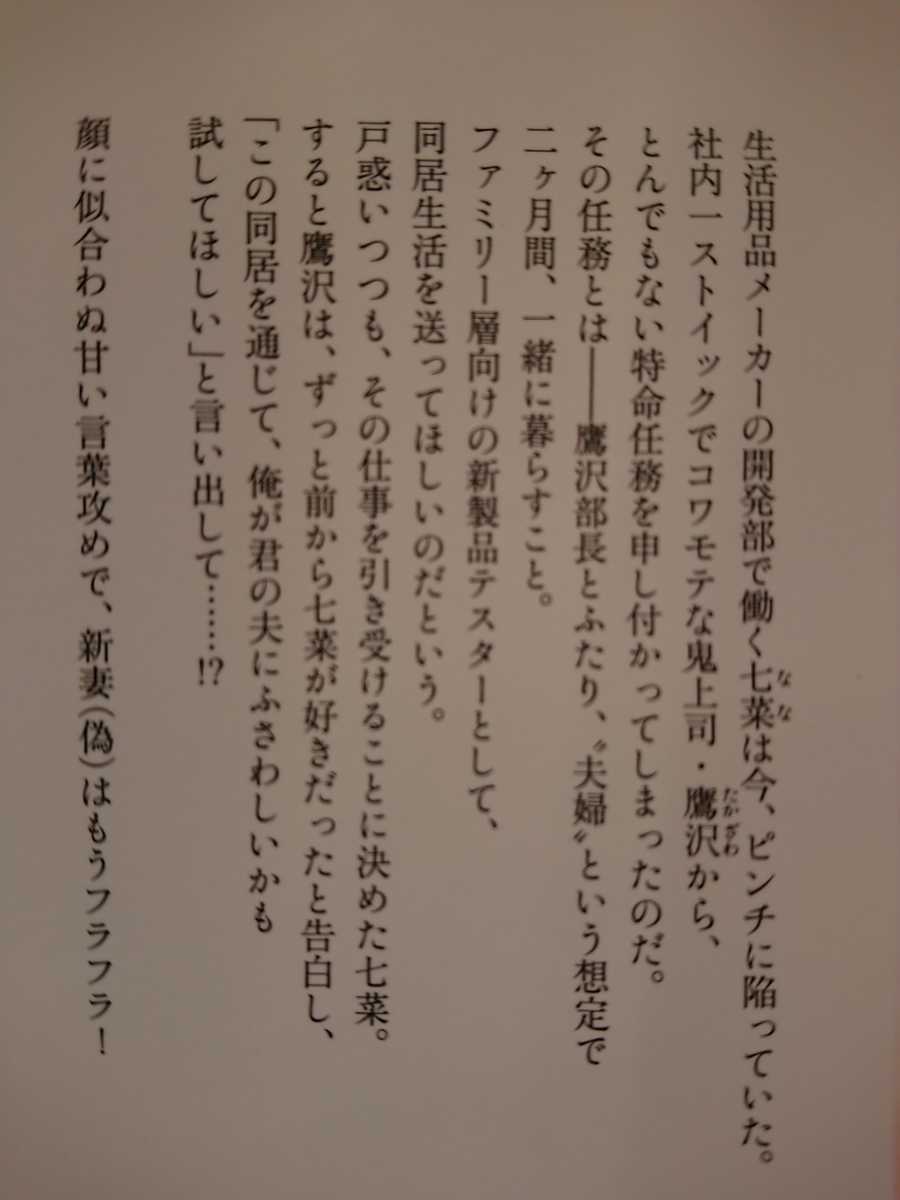 生活用品メーカーの開発部で働く七菜は今、ピンチに陥っていた。
社内一ストイックでコワモテな鬼上司・鷹沢から、
とんでもない特命任務を申し付かってしまったのだ。
その任務とは――鷹沢部長とふたり、〝夫婦〟という想定で
二ヶ月間、一緒に暮らすこと。
ファミリー層向けの新製品テスターとして、
同居生活を送ってほしいのだという。
戸惑いつつも、その仕事を引き受けることに決めた七菜。
すると鷹沢は、ずっと前から七菜が好きだったと告白し、
「この同居を通じて、俺が君の夫にふさわしいかも
試してほしい」と言い出して……!?
顔に似合わぬ甘い言葉攻めで、新妻（偽）はもうフラフラ！